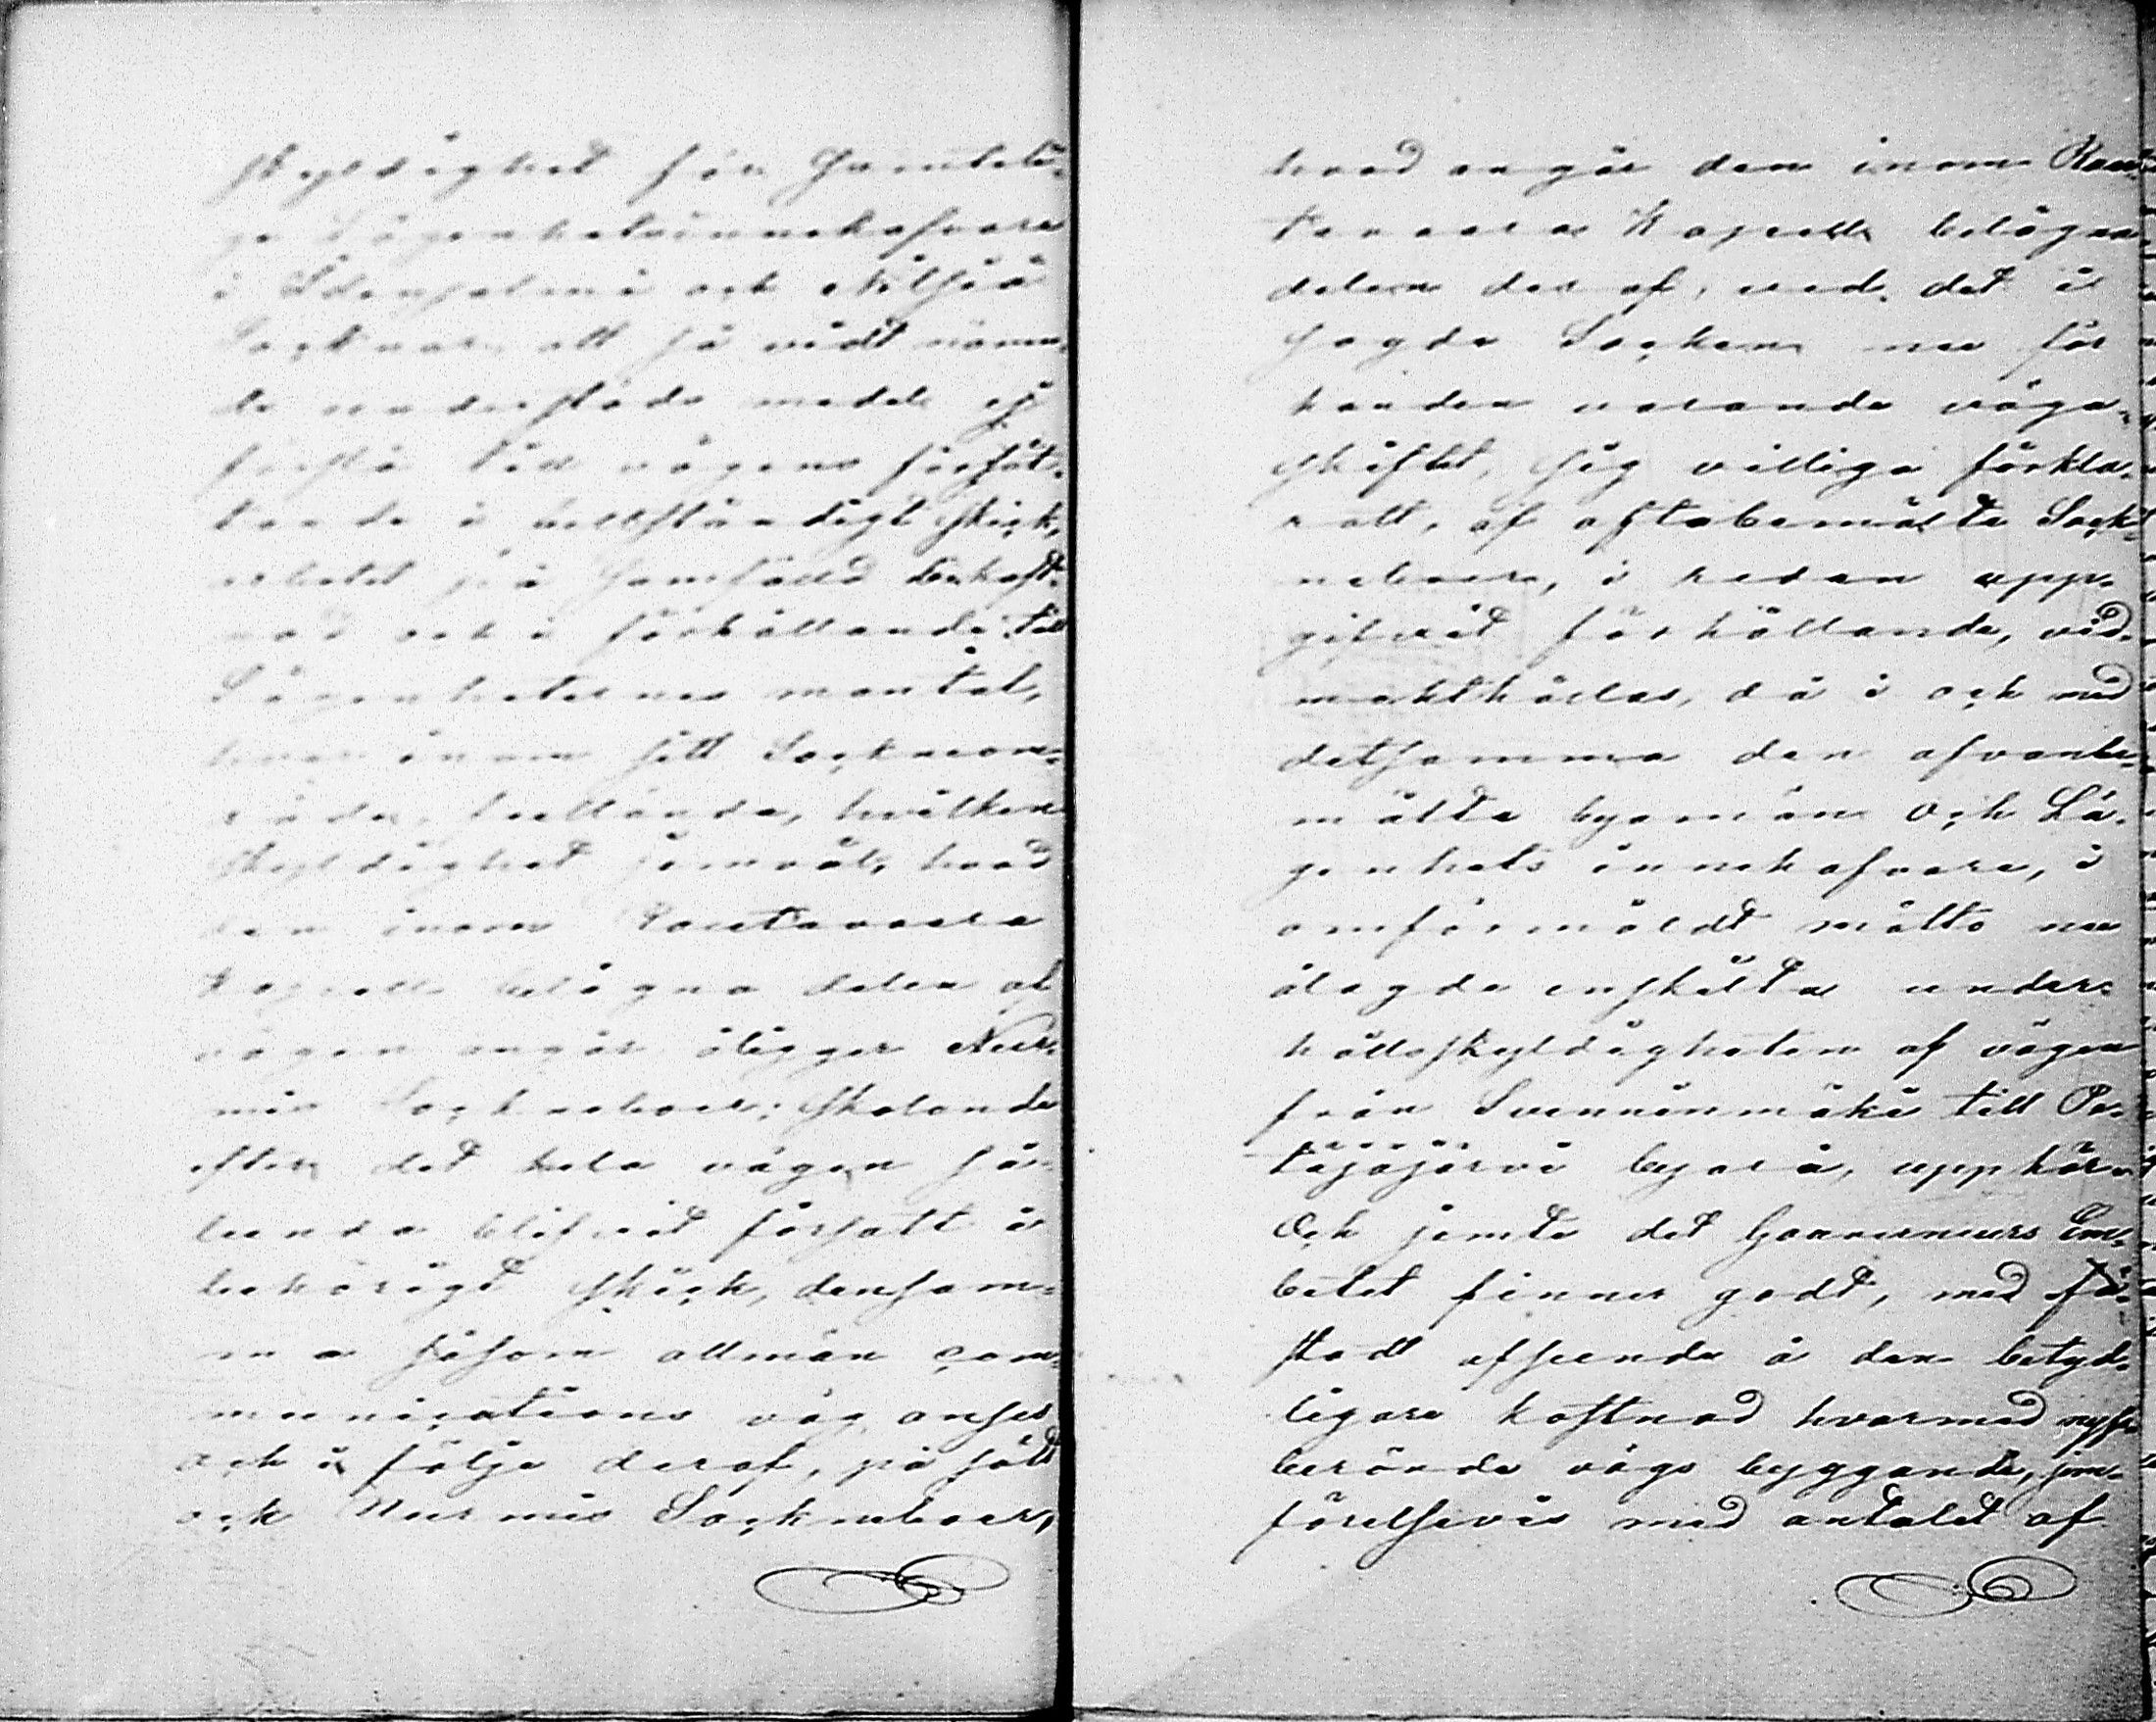 skyldighet för Samteli-
ge Lägenhetsinnehafvare
i Idensalmi och Nilsiä
Socknar, att så vidt nämn-
de understöds medel ej
förslå till vägens försät-
tande i fullständigt skick,
arbetet på samfälld bekost-
nad och i förhållande till
Lägenheternes mantal,
hvar inom sitt Sockneom-
råde, fullända, hvilken
skyldighet jemväl, hvad
den inom Rautavaara
Kapell belägna delen af
vägen angår åligger Nur-
mis Sockneboer; skolande
efter det hela vägen så-
lunda blifvit försatt i
behörigt skick, densam-
ma såsom allmän com-
municationsväg anses
och i följe deraf, på sätt
ock Nurmis Sockneboer,
hvad angår den inom Rau-
tavaara Kapell belägna
delen der af, med det i
sagde Socken nu för
handen varande väga-
skiftet, sig villiga förkla-
rat, af oftabemälte Sock-
neboer, i redan upp-
gifvit förhållande, vid-
makthållas, då i och med
detsamma den ofvanbe-
mälte byamän och Lä-
genhets innehafvare, i
omförmäldt måtto nu
ålagde enskilta under-
hållsskyldigheten af vägen
från Svenninmäki till Pe-
täjäjärvi byarå, upphör.
Och jemte det Gouverneurs Em-
betet finner godt, med fä-
stadt afseende å den betyd-
ligare kostnad hvarmed nyss-
berörde vägs byggande, jem-
förelsevis med antalet af